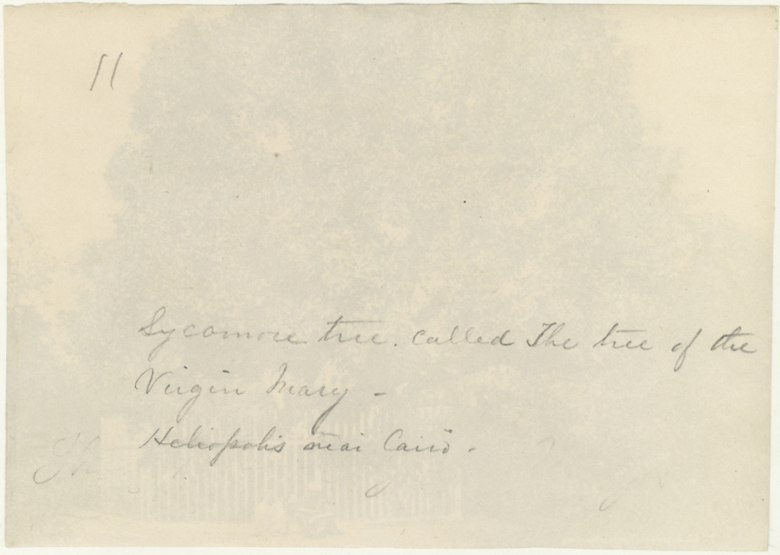 11
Sycamore tree. called The tree of the
Virgin Mary -
Heliopolis near Cairo.